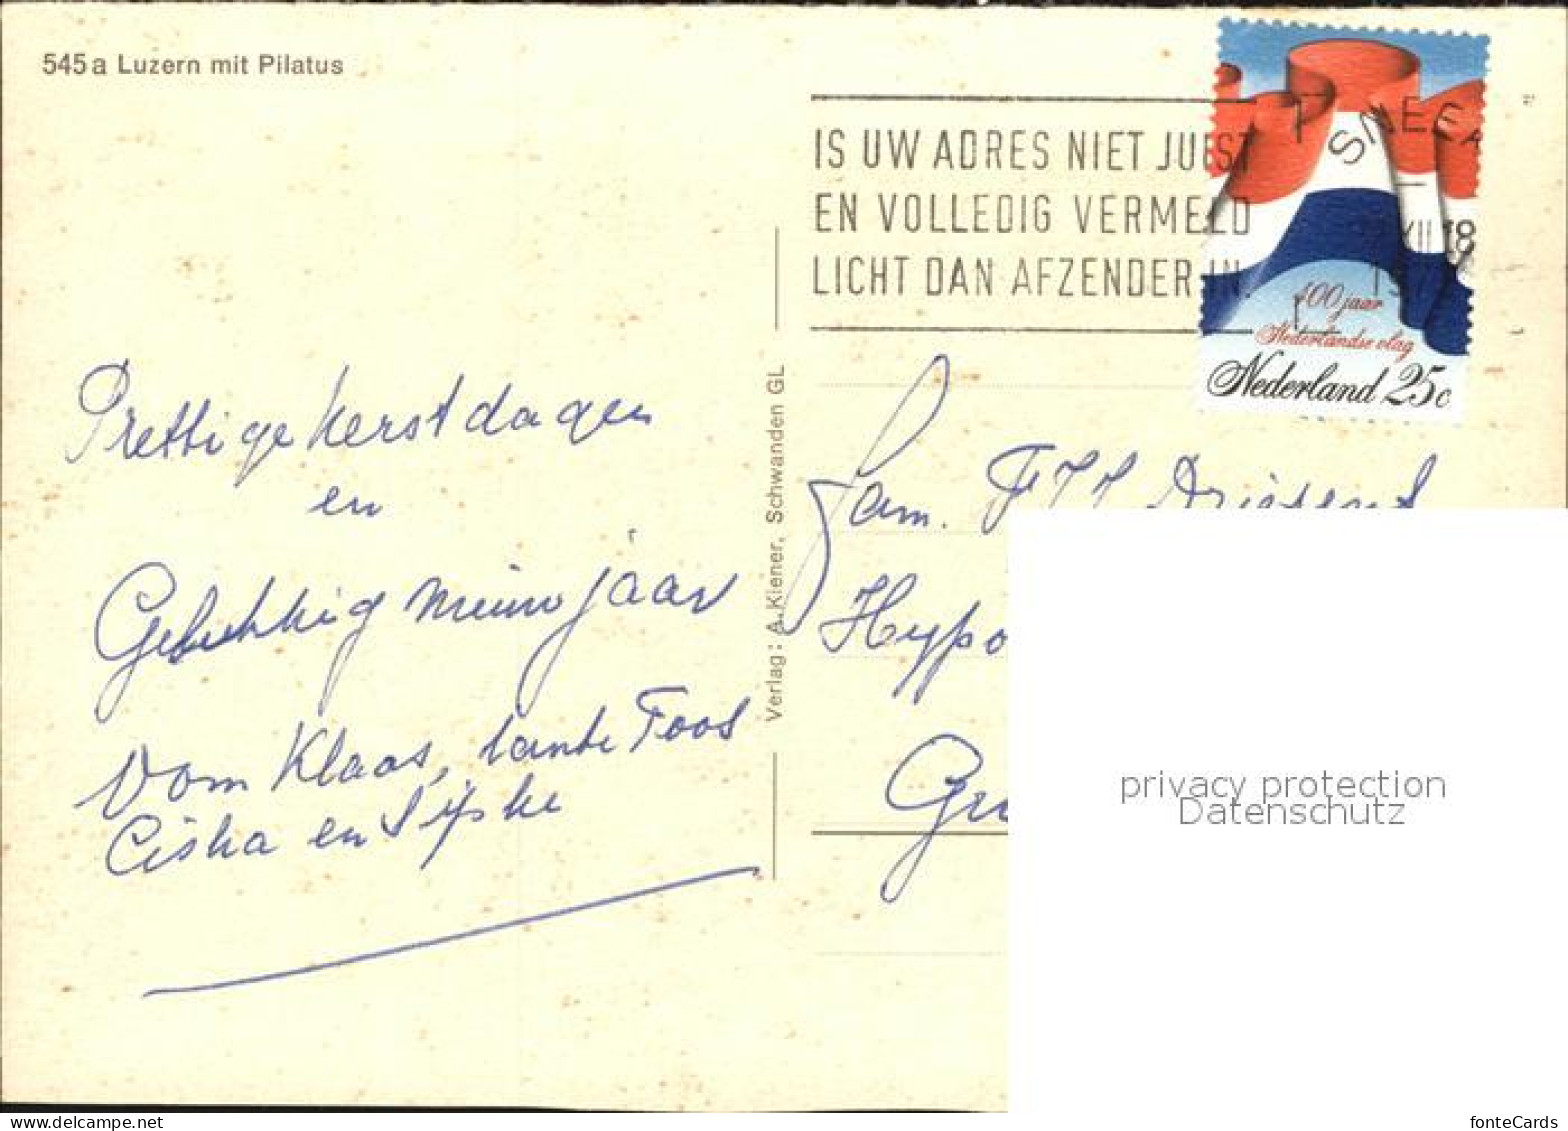 545a Luzern mit Pilatus
IS UW ADRES NIET JUIST
EN VOLLEDIG VERMELD
LICHT DAN AFZENDER IN.
SNEEK
XII 18
400 jaar
Nederlandse vlag
Nederland 25c
Prettige kerstdagen
en
Gelukkig nieuw jaar
Oom Klaas, tante Toos
Ciska en Sijske
Verlag: A. Kiener, Schwanden GL
Fam.
Hypo
privacy protection
Datenschutz
fonteCards